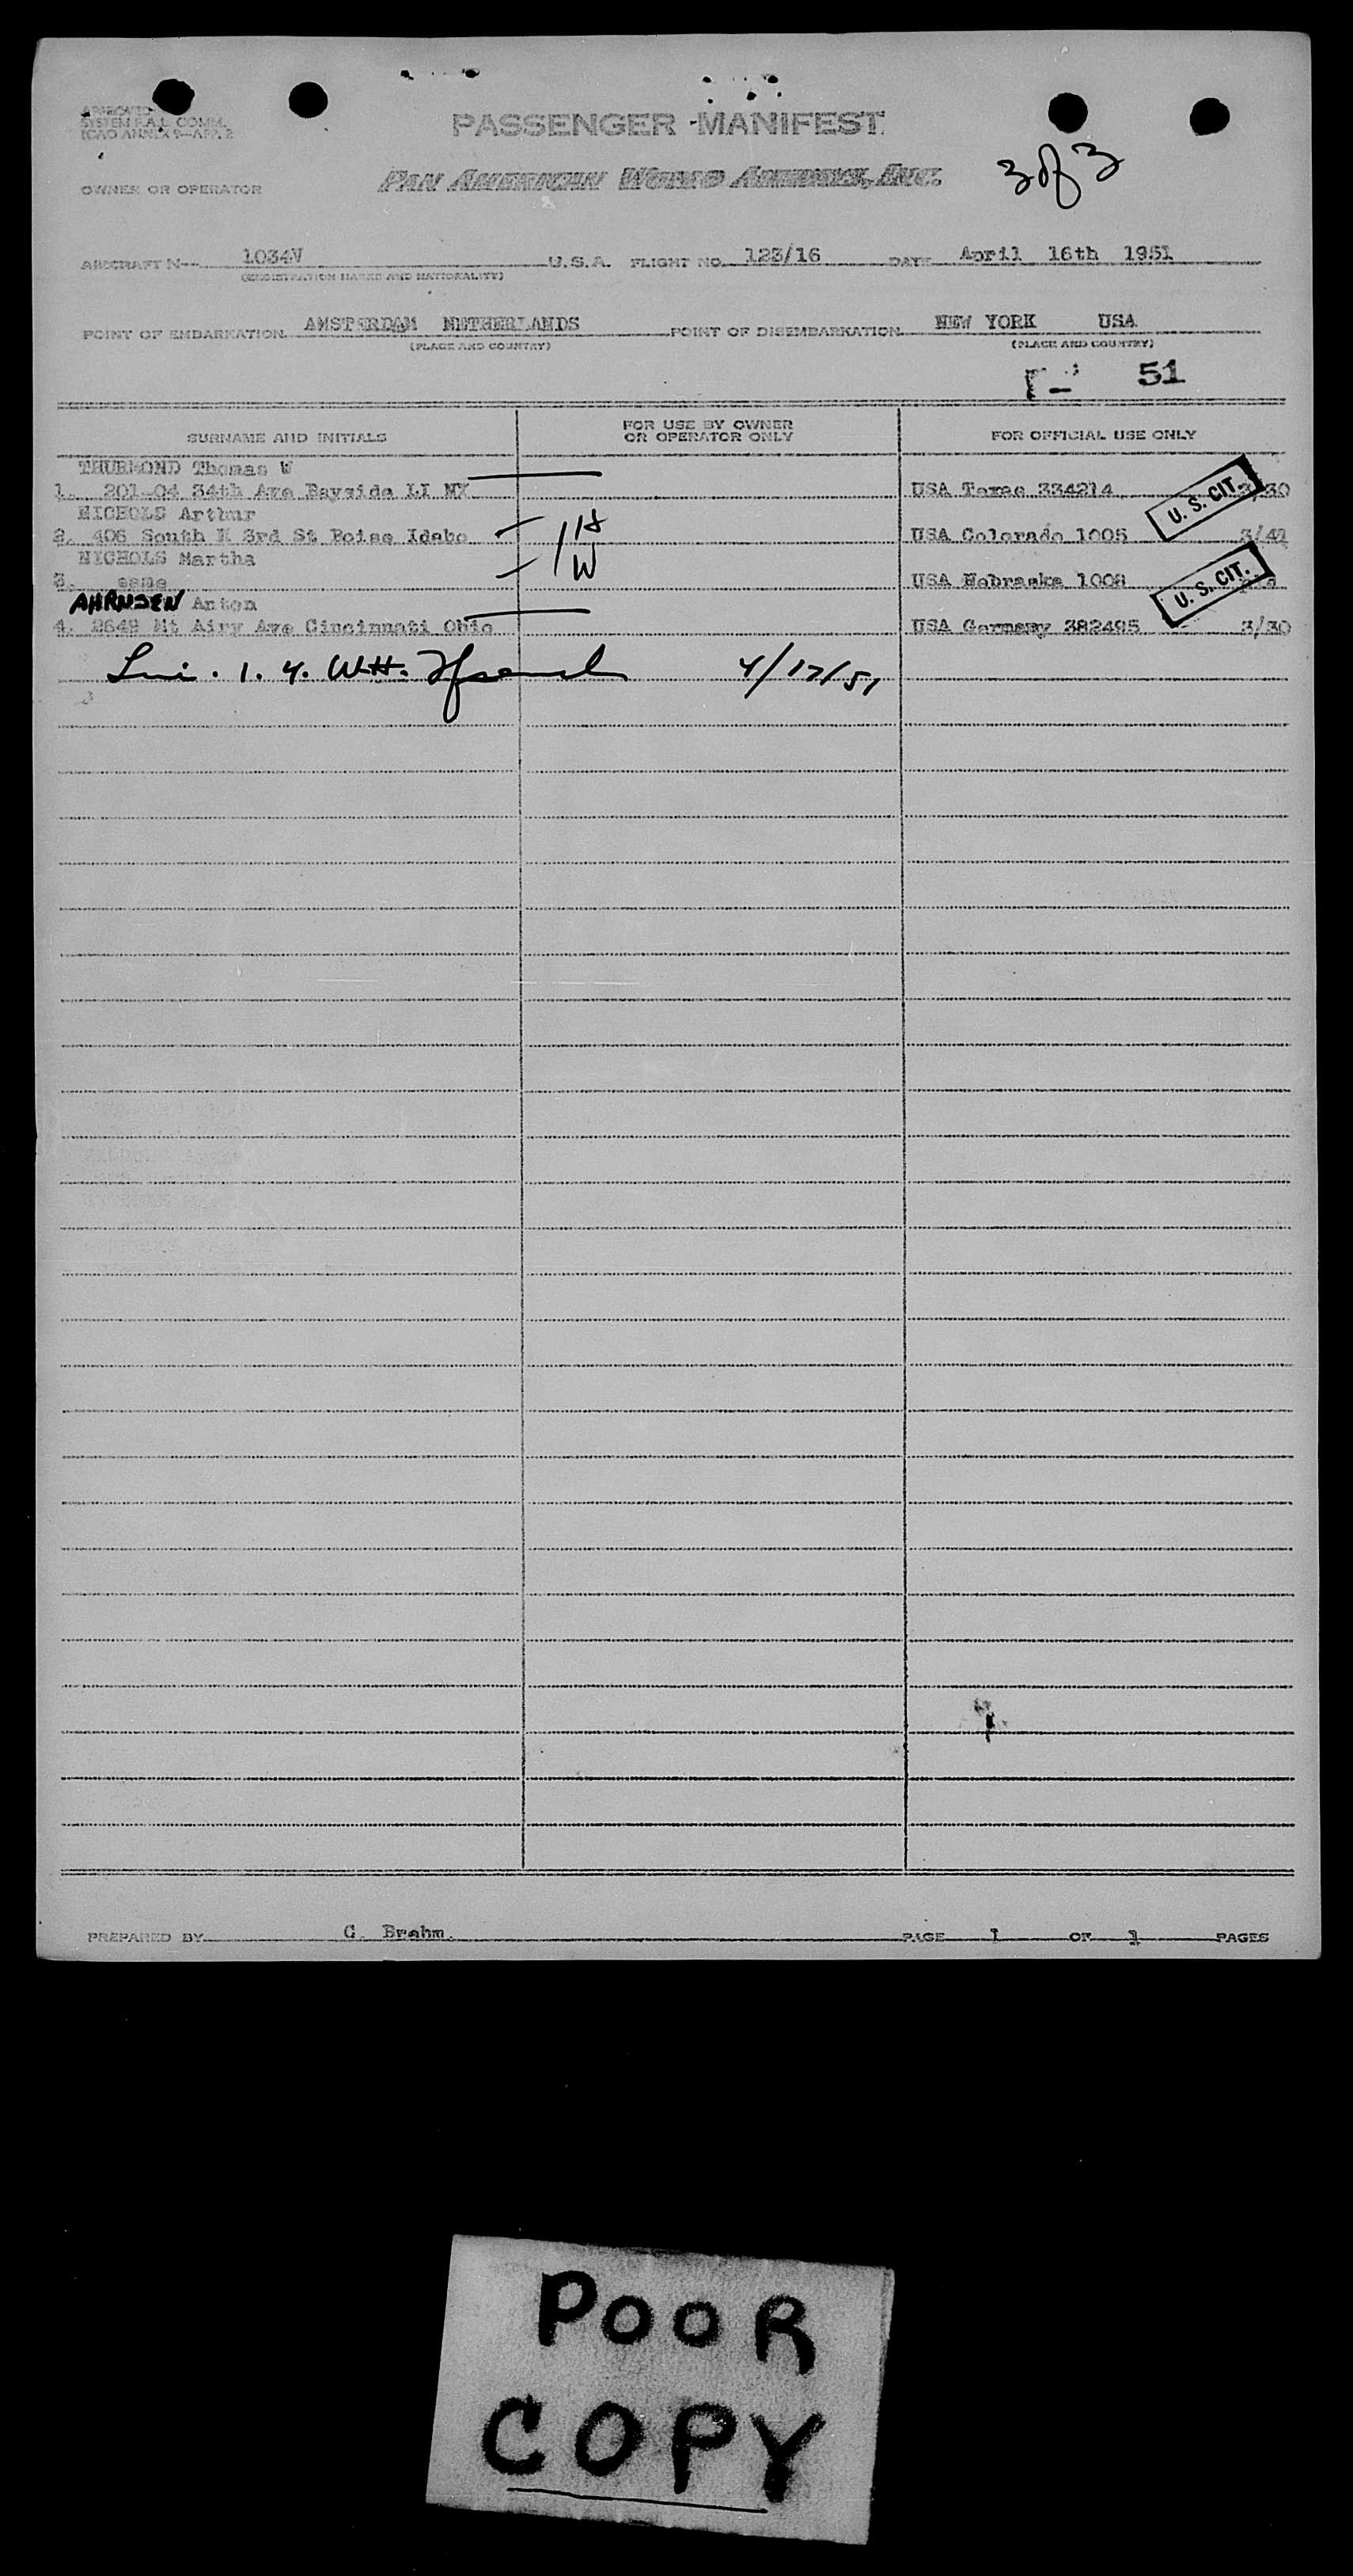 APPROVED
SYSTEM F.A.L. COMM.
ICAO ANNEX 9—APP. 2
PASSENGER MANIFEST
3 of 3
OWNER OR OPERATOR PAN AMERICAN WORLD AIRWAYS, INC.
AIRCRAFT N— 1034V U.S.A. FLIGHT NO. 123/16 DATE April 16th 1951
(REGISTRATION MARKS AND NATIONALITY)
POINT OF EMBARKATION AMSTERDAM NETHERLANDS POINT OF DISEMBARKATION NEW YORK USA
(PLACE AND COUNTRY) (PLACE AND COUNTRY)
51
SURNAME AND INITIALS FOR USE BY OWNER OR OPERATOR ONLY FOR OFFICIAL USE ONLY
THURMOND Thomas W
1. 201-04 34th Ave Bayside LI NY USA Texas 334214 U. S. CIT. 3/30
NICHOLS Arthur
2. 406 South 3rd St Boise Idaho H USA Colorado 1005
NICHOLS Martha
3. same W USA Nebraska 1008 U. S. CIT.
AHRNSEN Anton
4. 2649 Mt Airy Ave Cincinnati Ohio USA Germany 382495 3/30
1. 4. W.H. 4/17/51
PREPARED BY C. Brahm. PAGE 1 OF 1 PAGES
POOR
COPY